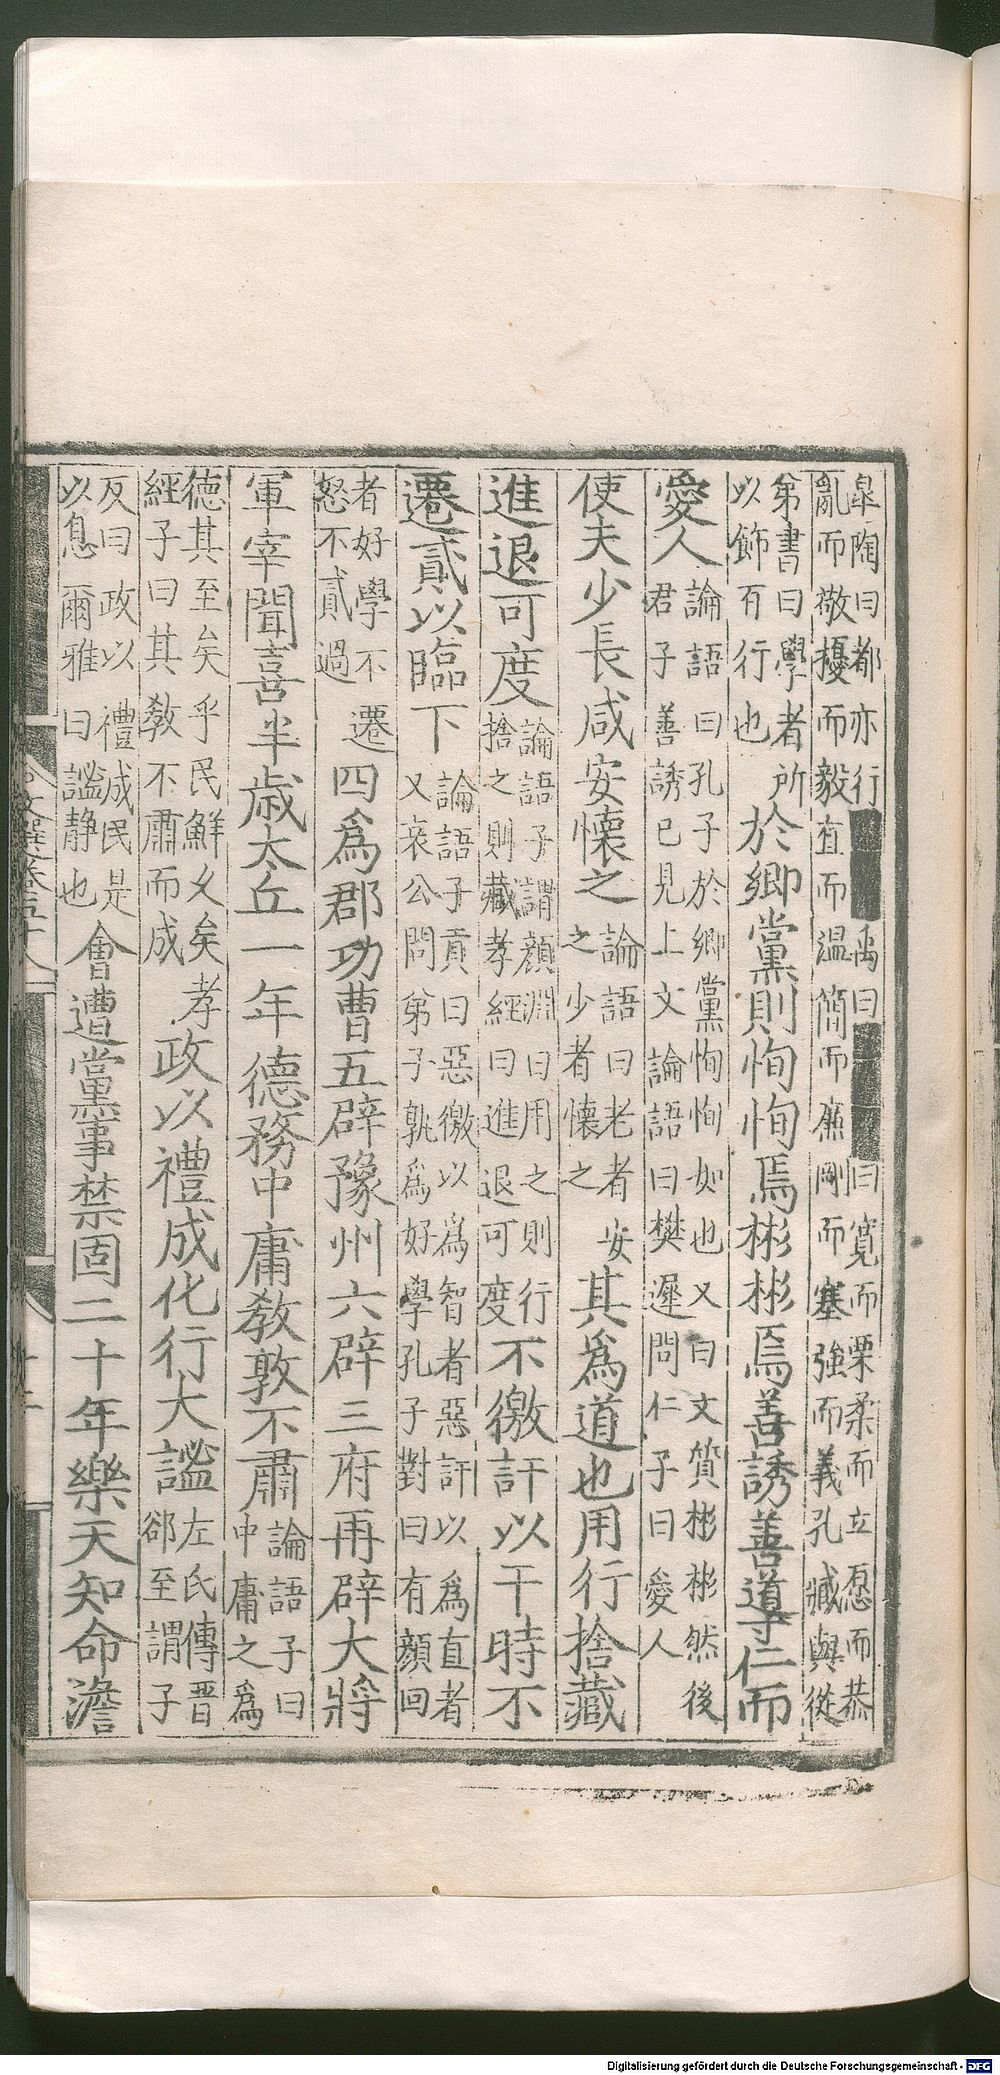 皐陶曰都亦行禹曰曰寬而栗柔而立愿而恭
亂而敬擾而毅直而温簡而廉剛而塞強而義孔臧與從
弟書曰學者所
以飾百行也
於鄉黨則恂恂焉彬彬焉善誘善導仁而
愛人
論語曰孔子於鄉黨恂恂如也又曰文質彬彬然後
君子善誘已見上文論語曰樊遲問仁子曰愛人
使夫少長咸安懷之
論語曰老者安
之少者懷之
其爲道也用行捨藏
進退可度
論語子謂顔淵曰用之則行
捨之則藏孝經曰進退可度
不徼訐以干時不
遷貳以臨下
論語子貢曰惡徼以爲智者惡訐以爲直者
又哀公問弟子孰爲好學孔子對曰有顔回
者好學不遷
怒不貳過
四爲郡功曹五辟豫州六辟三府再辟大將
軍宰聞喜半歲太丘一年德務中庸敎敦不肅
論語子曰
中庸之爲
德其至矣乎民鮮乆矣孝
經子曰其敎不肅而成
政以禮成化行大謐
左氏傳晋
郤至謂子
反曰政以禮成民是
以息爾雅曰謐静也
會遭黨事禁固二十年樂天知命澹
文選卷五十八
十二
Digitalisierung gefördert durch die Deutsche Forschungsgemeinschaft - DFG